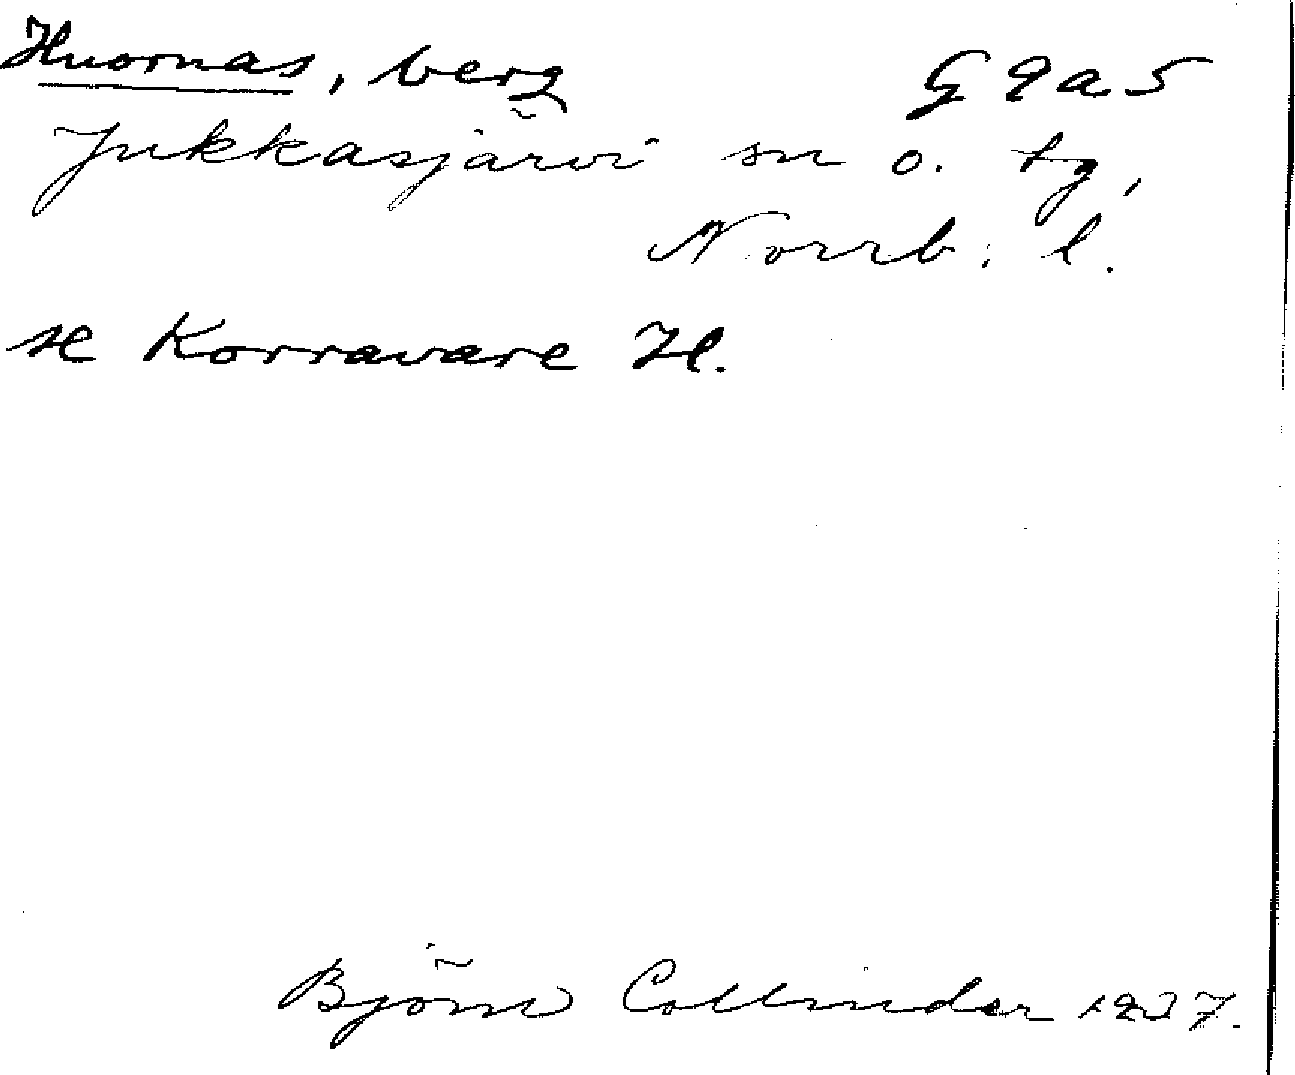 Huornas, berg G 9 a 5
Jukkasjärvi sn o. tg,
Norrb: l.
se Korravare H.
Björn Collinder 1937.